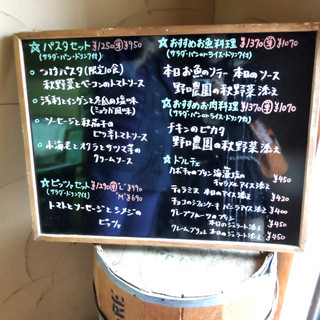 ☆パスタセット ¥1250 ¥950
(サラダ・パン・ドリンク付)
・つけパスタ(限定10食)
秋野菜とベーコンのトマトソース
・浅利とインゲンと
・ソーセージと秋茄子の
ピリ辛トマトソース
・小海老とオクラとサツマ芋の
クリームソース
☆ピッツァセット ¥1290 "L" ¥990
(サラダ・ドリンク付) "M" ¥690
トマトとソーセージとシメジの
ピッツァ
☆おすすめお魚料理 ¥1370 ¥1070
(サラダ・パンorライス・ドリンク付)
本日お魚のソテー 本日のソース
野口農園の秋野菜 添え
☆おすすめお肉料理 ¥1370 ¥1070
(サラダ・パンorライス・ドリンク付)
チキンのピカタ
野口農園の秋野菜 添え
☆ドルチェ
カボチャのプリン 海藻塩の
キャラメルアイス添え ¥450
ティラミス 本日のアイス添え ¥420
チョコのシフォンケーキ バニラアイス添え ¥400
グレープフルーツのプリン
本日のジェラート添え ¥450
クレームブリュレ 本日のジェラート添え ¥450